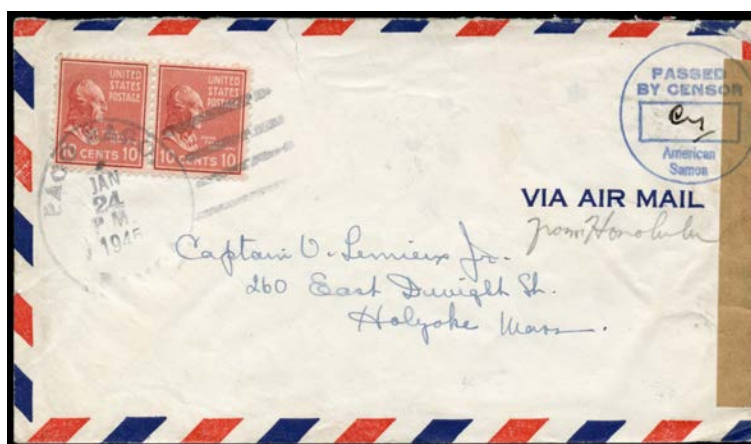 UNITED STATES POSTAGE
10 CENTS 10
UNITED STATES POSTAGE
10 CENTS 10
PAGO PAGO
JAN
24
P.M.
1945
PASSED
BY CENSOR
American
Samoa
VIA AIR MAIL
from Honolulu
Captain V. Lemieux Jr.
260 East Dwight St.
Holyoke Mass.